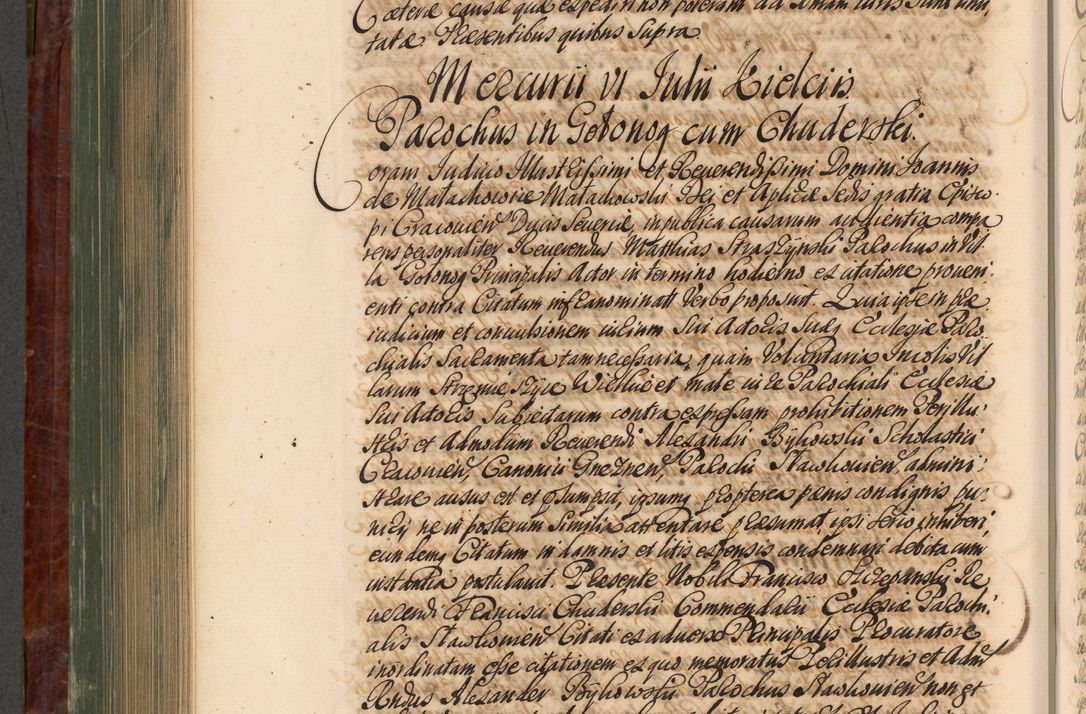 Cæteræ causæ quæ expediri non poterant ad
tatæ Præsentibus quibus supra
Mercurii VI Julii Kielciis
Parochus in Gołonog cum Chuderski.
Coram Judicio Illustrissimi et Reverendissimi Domini Joannis
de Małachowice Małachowski Dei et Aplicæ Sedis gratia Episco-
pi Cracovien Ducis Severiæ, in publica causarum audientia compa
rens personaliter Reverendus Matthias Straszynski Parochus in Vil
la Gołonog Principalis Actor in termino hodierno ex citatione proveni
enti contra Citatum infranominatt Verbo proposuit. Quia ipse in præ
iudicium et convulsionem iurium Sui Actoris Suæq Ecclesiæ Paro
chialis Sacramenta tam necessaria, quam Voluntaria Incolis Vil
larum Strzemieszyce Wielkie et małe iure Parochiali Ecclesiæ
Sui Actoris Subiectarum contra expressam prohibitionem Perillu
stris et Admodum Reverendi Alexandri Bykowski Scholastici
Cracovien, Canonici Gneznen, Parochi Sławkovien, admini
strare ausus est et præsumpsit, ipsumq propterea pænis condignis pu
niri, ne in posterum Similia attentare præsumat, ipsi serio inhiberi
eundemq Citatum in damnis et litis expensis condemnari debita cum
instantia postulavit. Præsente Nobili Francisco Szczepanski Re
verendi Francisci Chuderski Commendarii Ecclesiæ Parochi
alis Sławkovien Citati ex adverso Principalis Procuratore
inordinatam esse citationem ex quo memoratus Perillustris et Adm
Rndus Alexander Bykowski Parochus Sławkovien non et